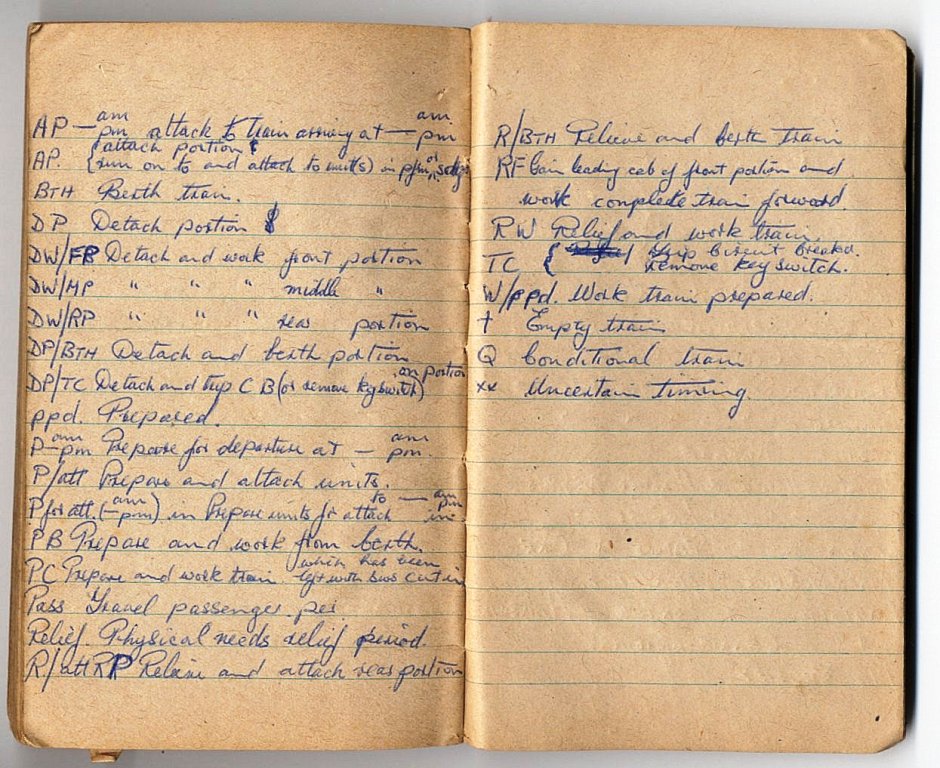 AP — am/pm attach to train arriving at — am/pm
AP. { attach portion
run on to and attach to unit(s) in pfm, or sdgs
BTH Berth train.
DP Detach portion
DW/FP Detach and work front portion
DW/MP " " " middle "
DW/RP " " " rear portion
DP/BTH Detach and berth portion
DP/TC Detach and trip C B (or remove key switch) on portion
ppd. Prepared.
P — am/pm Prepare for departure at — am/pm.
P/att Prepare and attach units.
P for att. (— am/pm) in Prepare units for attach to — am/pm in
PB Prepare and work from berth.
PC Prepare and work train which has been left with cut in
Pass Travel passenger per
Relief. Physical needs relief period.
R/att RP Relieve and attach rear portion
R/BTH Relieve and berth train
RF Gain leading cab of front portion and
work complete train forward.
RW Relief and work train
TC { Trip Circuit Breaker.
remove key switch.
W/ppd. Work train prepared.
† Empty train
Q Conditional train
xx Uncertain timing.